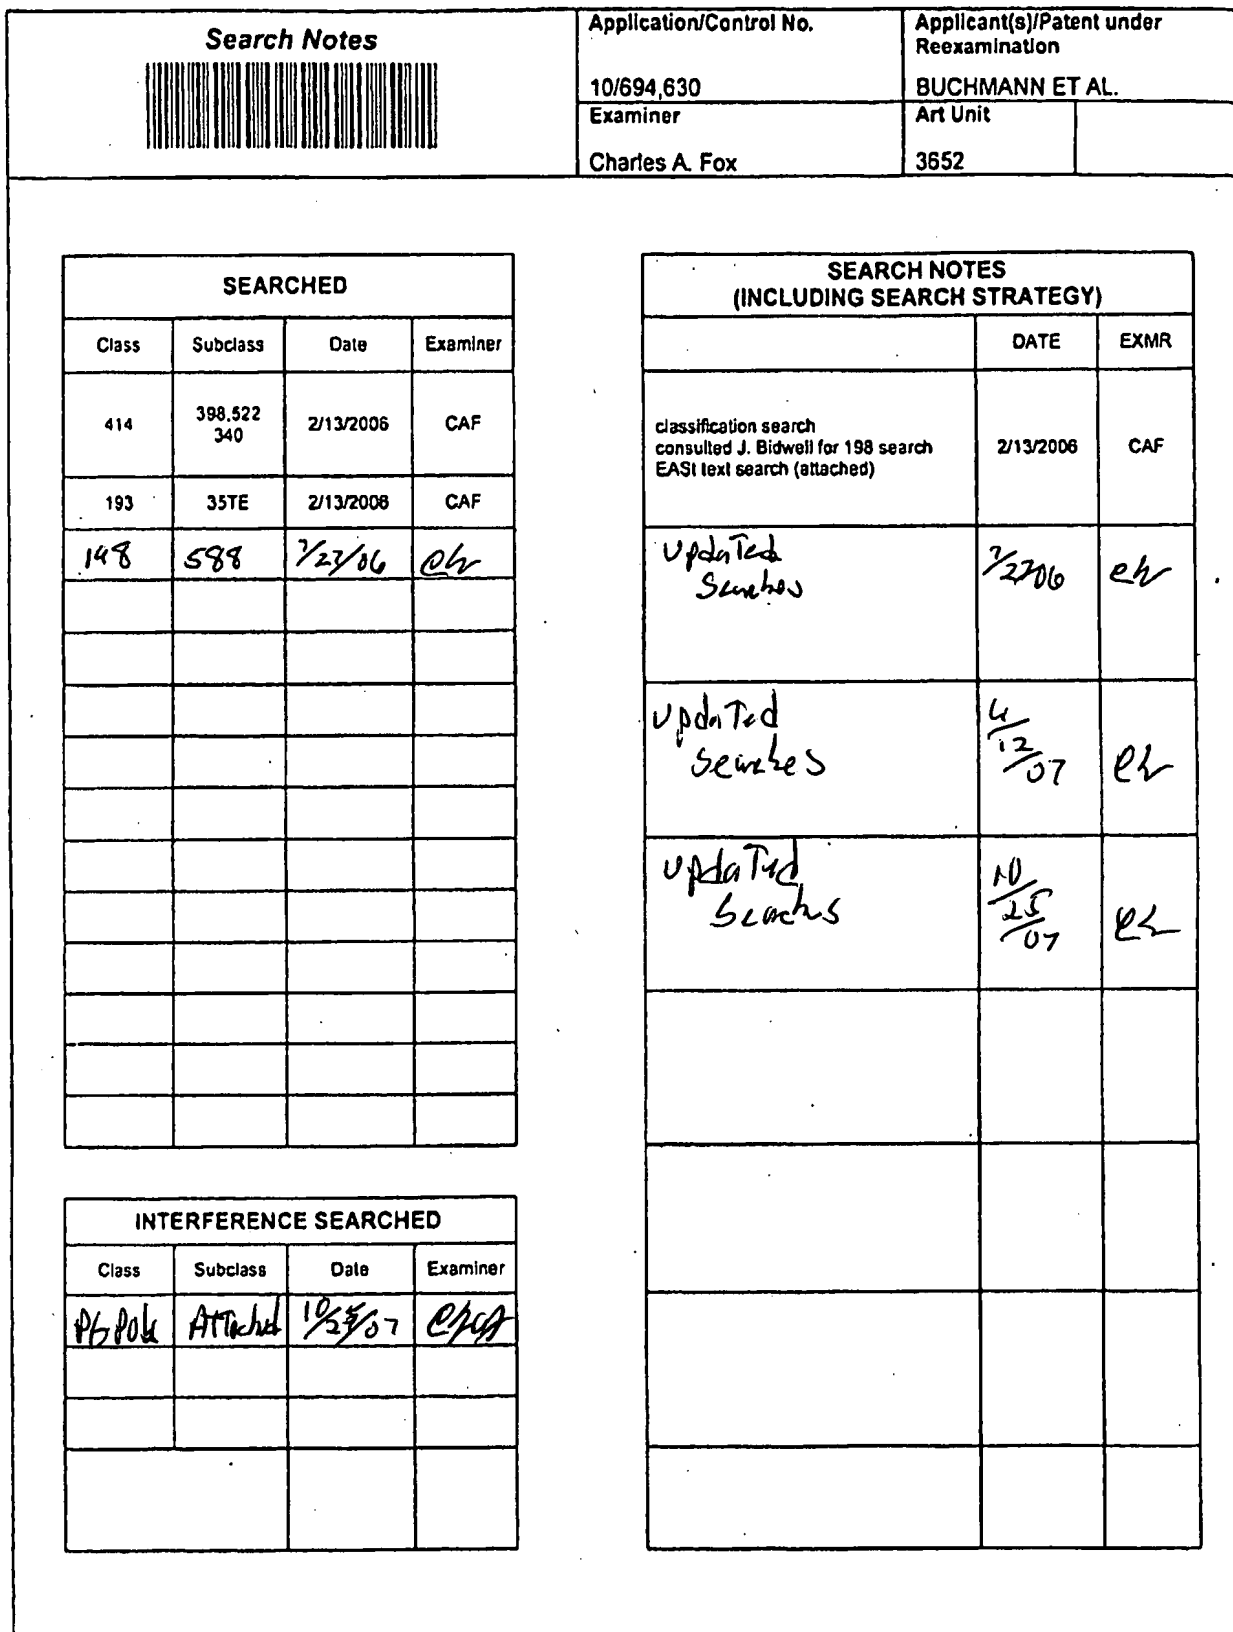 Search Notes
Application/Control No.
10/694,630
Applicant(s)/Patent under
Reexamination
BUCHMANN ET AL.
Examiner
Charles A. Fox
Art Unit
3652
SEARCHED
Class Subclass Date Examiner
414 398,522
340 2/13/2006 CAF
193 35TE 2/13/2006 CAF
198 588 7/27/06
INTERFERENCE SEARCHED
Class Subclass Date Examiner
PGPub Attached 10/25/07
SEARCH NOTES
(INCLUDING SEARCH STRATEGY)
DATE EXMR
classification search
consulted J. Bidwell for 198 search
EASt text search (attached) 2/13/2006 CAF
Updated
Searches 7/27/06
Updated
Searches 4/12/07
Updated
Searches 10/25/07